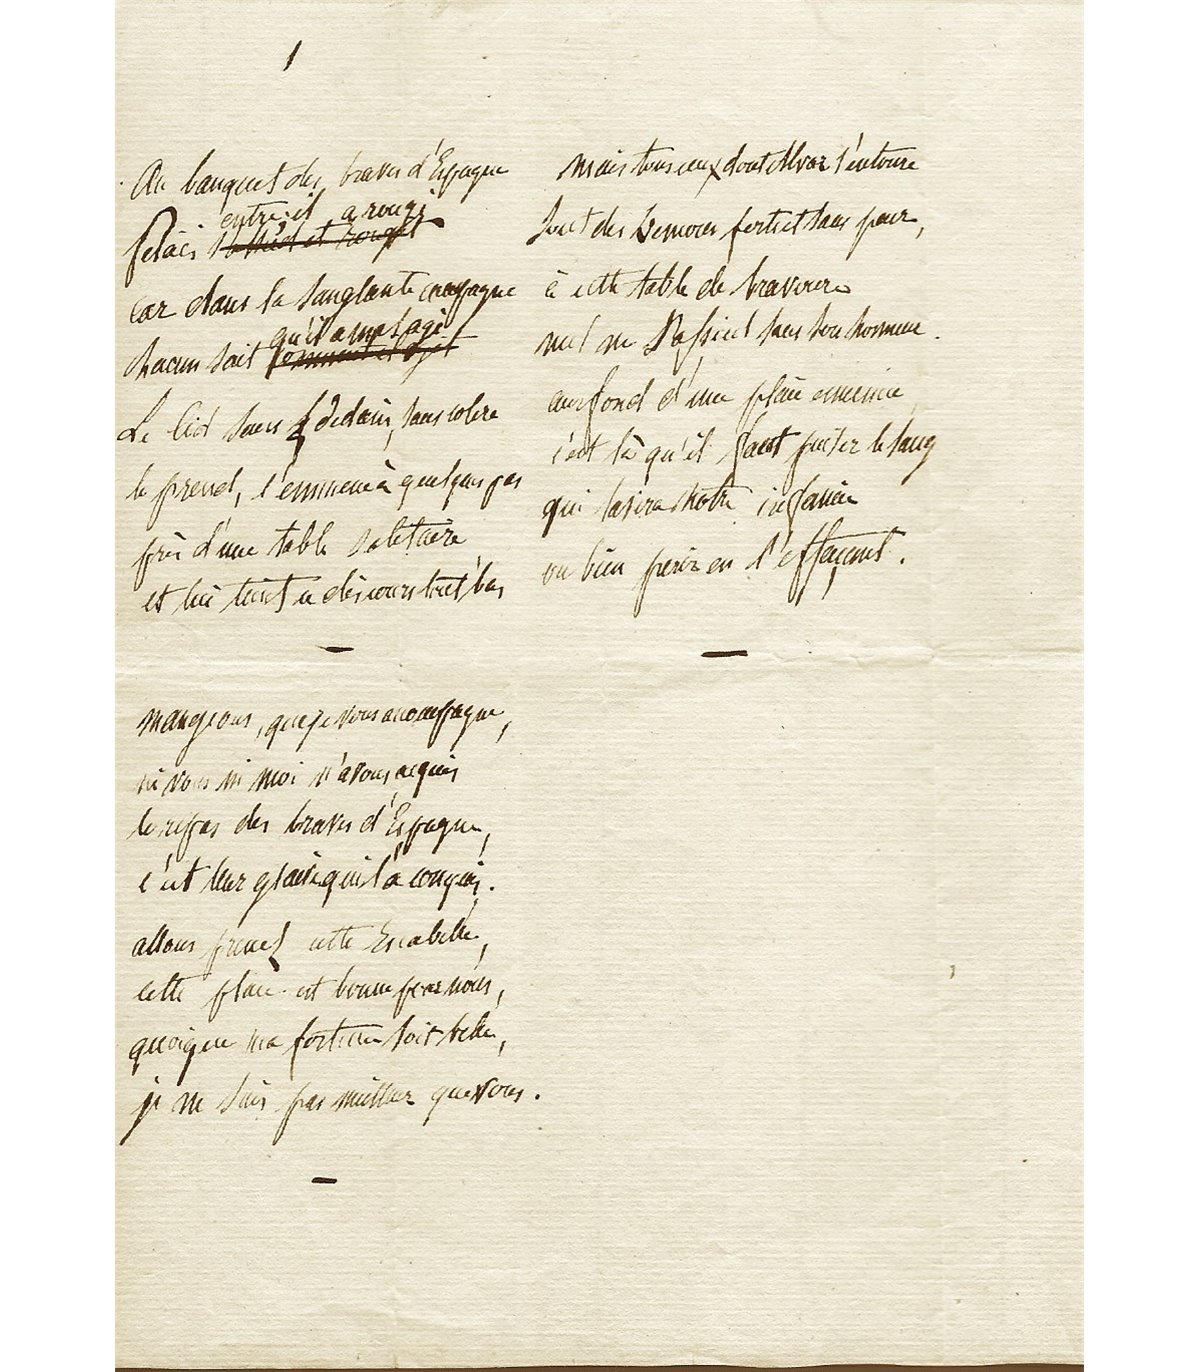 1
Au banquet des braves d'Espagne
entre-il, a rougi
Pélaës s'assied et rougit
car dans la sanglante campagne
qu'il a mal agi
chacun sait comment il agit
Le Cid sans dédain, sans colère
le prend, l'emmene à quelques pas
près d'une table solitaire
et lui tient ce discours tout bas
mangeons, que je vous accompagne,
ni vous ni moi n'avons acquis
le repas des braves d'Espagne,
c'est leur glaive qui l'a conquis.
allons prenez cette Escabelle,
cette place est bonne pour nous,
quoique ma fortune soit belle,
je ne suis pas meilleur que vous.
mais tous ceux dont Alvar s'entoure
sont des hommes forts et sans peur,
à cette table de bravoure
nul ne s'assied sans son honneur.
au fond d'une plaie ennemie
c'est là qu'il faut puiser le sang
qui lavera notre infamie
ou bien périr en l'effaçant.